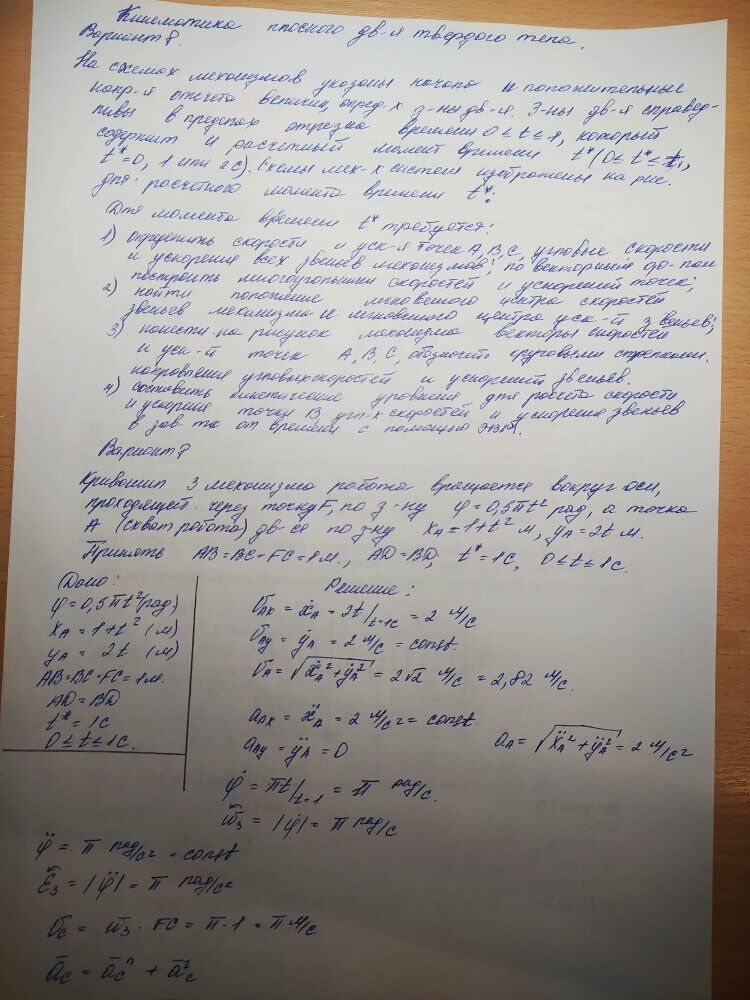 Кинематика плоского дв-я твердого тела.
Вариант 8.
На схемах механизмов указаны начала и положительные
напр-я отсчета величин, опред-х з-ны дв-я. З-ны дв-я справед-
ливы в пределах отрезка времени 0 ≤ t ≤ 1, который
содержит и расчетный момент времени t* (0 ≤ t* ≤ t₁,
t* = 0, 1 или 2с). Схемы мех-х систем изображены на рис.
для расчётного момента времени t*.
Для момента времени t* требуется:
1) определить скорости и уск-я точек А, В, С, угловые скорости
и ускорения всех звеньев механизмов; по векторным фо-лам
построить многоугольники скоростей и ускорений точек;
2) найти положение мгновенного центра скоростей
звеньев механизма и мгновенного центра уск-й 3 звеньев;
3) нанести на рисунок механизма векторы скоростей
и уск-й точек А, В, С, обозначить круговыми стрелками
направления угловых скоростей и ускорений звеньев.
4) составить кинетические уровнения для расчета скорости
и ускорения точки В, угл-х скоростей и ускорения звеньев
в зав-ти от времени с помощью ЭВМ.
Вариант 8
Кривошип 3 механизма робота вращается вокруг оси,
проходящей через точку F, по з-ну φ = 0,5πt² рад, а точка
А (схват робота) дв-ся по з-ну x_A = 1 + t² м, y_A = 2t м.
Принять АВ = ВС = FC = 1 м., AD = BD, t* = 1с, 0 ≤ t ≤ 1с.
Дано: Решение:
φ = 0,5πt² (рад)
x_A = 1 + t² (м)
y_A = 2t (м)
АВ = ВС = FC = 1 м.
AD = BD
t* = 1с
0 ≤ t ≤ 1с.
v_Ax = ẋ_A = 2t/t=1c = 2 м/с
v_Ay = ẏ_A = 2 м/с = const.
v_A = √(ẋ_A² + ẏ_A²) = 2√2 м/с = 2,82 м/с.
a_Ax = ẍ_A = 2 м/с² = const.
a_Ay = ÿ_A = 0 a_A = √(ẍ_A² + ÿ_A²) = 2 м/с²
φ̇ = πt/t=1 = π рад/с.
ω̄₃ = |φ̇| = π рад/с
φ̈ = π рад/с² = const
ε̄₃ = |φ̈| = π рад/с²
v̄_C = ω̄₃ · FC = π · 1 = π м/с
ā_C = ā_C^n + ā_C^τ